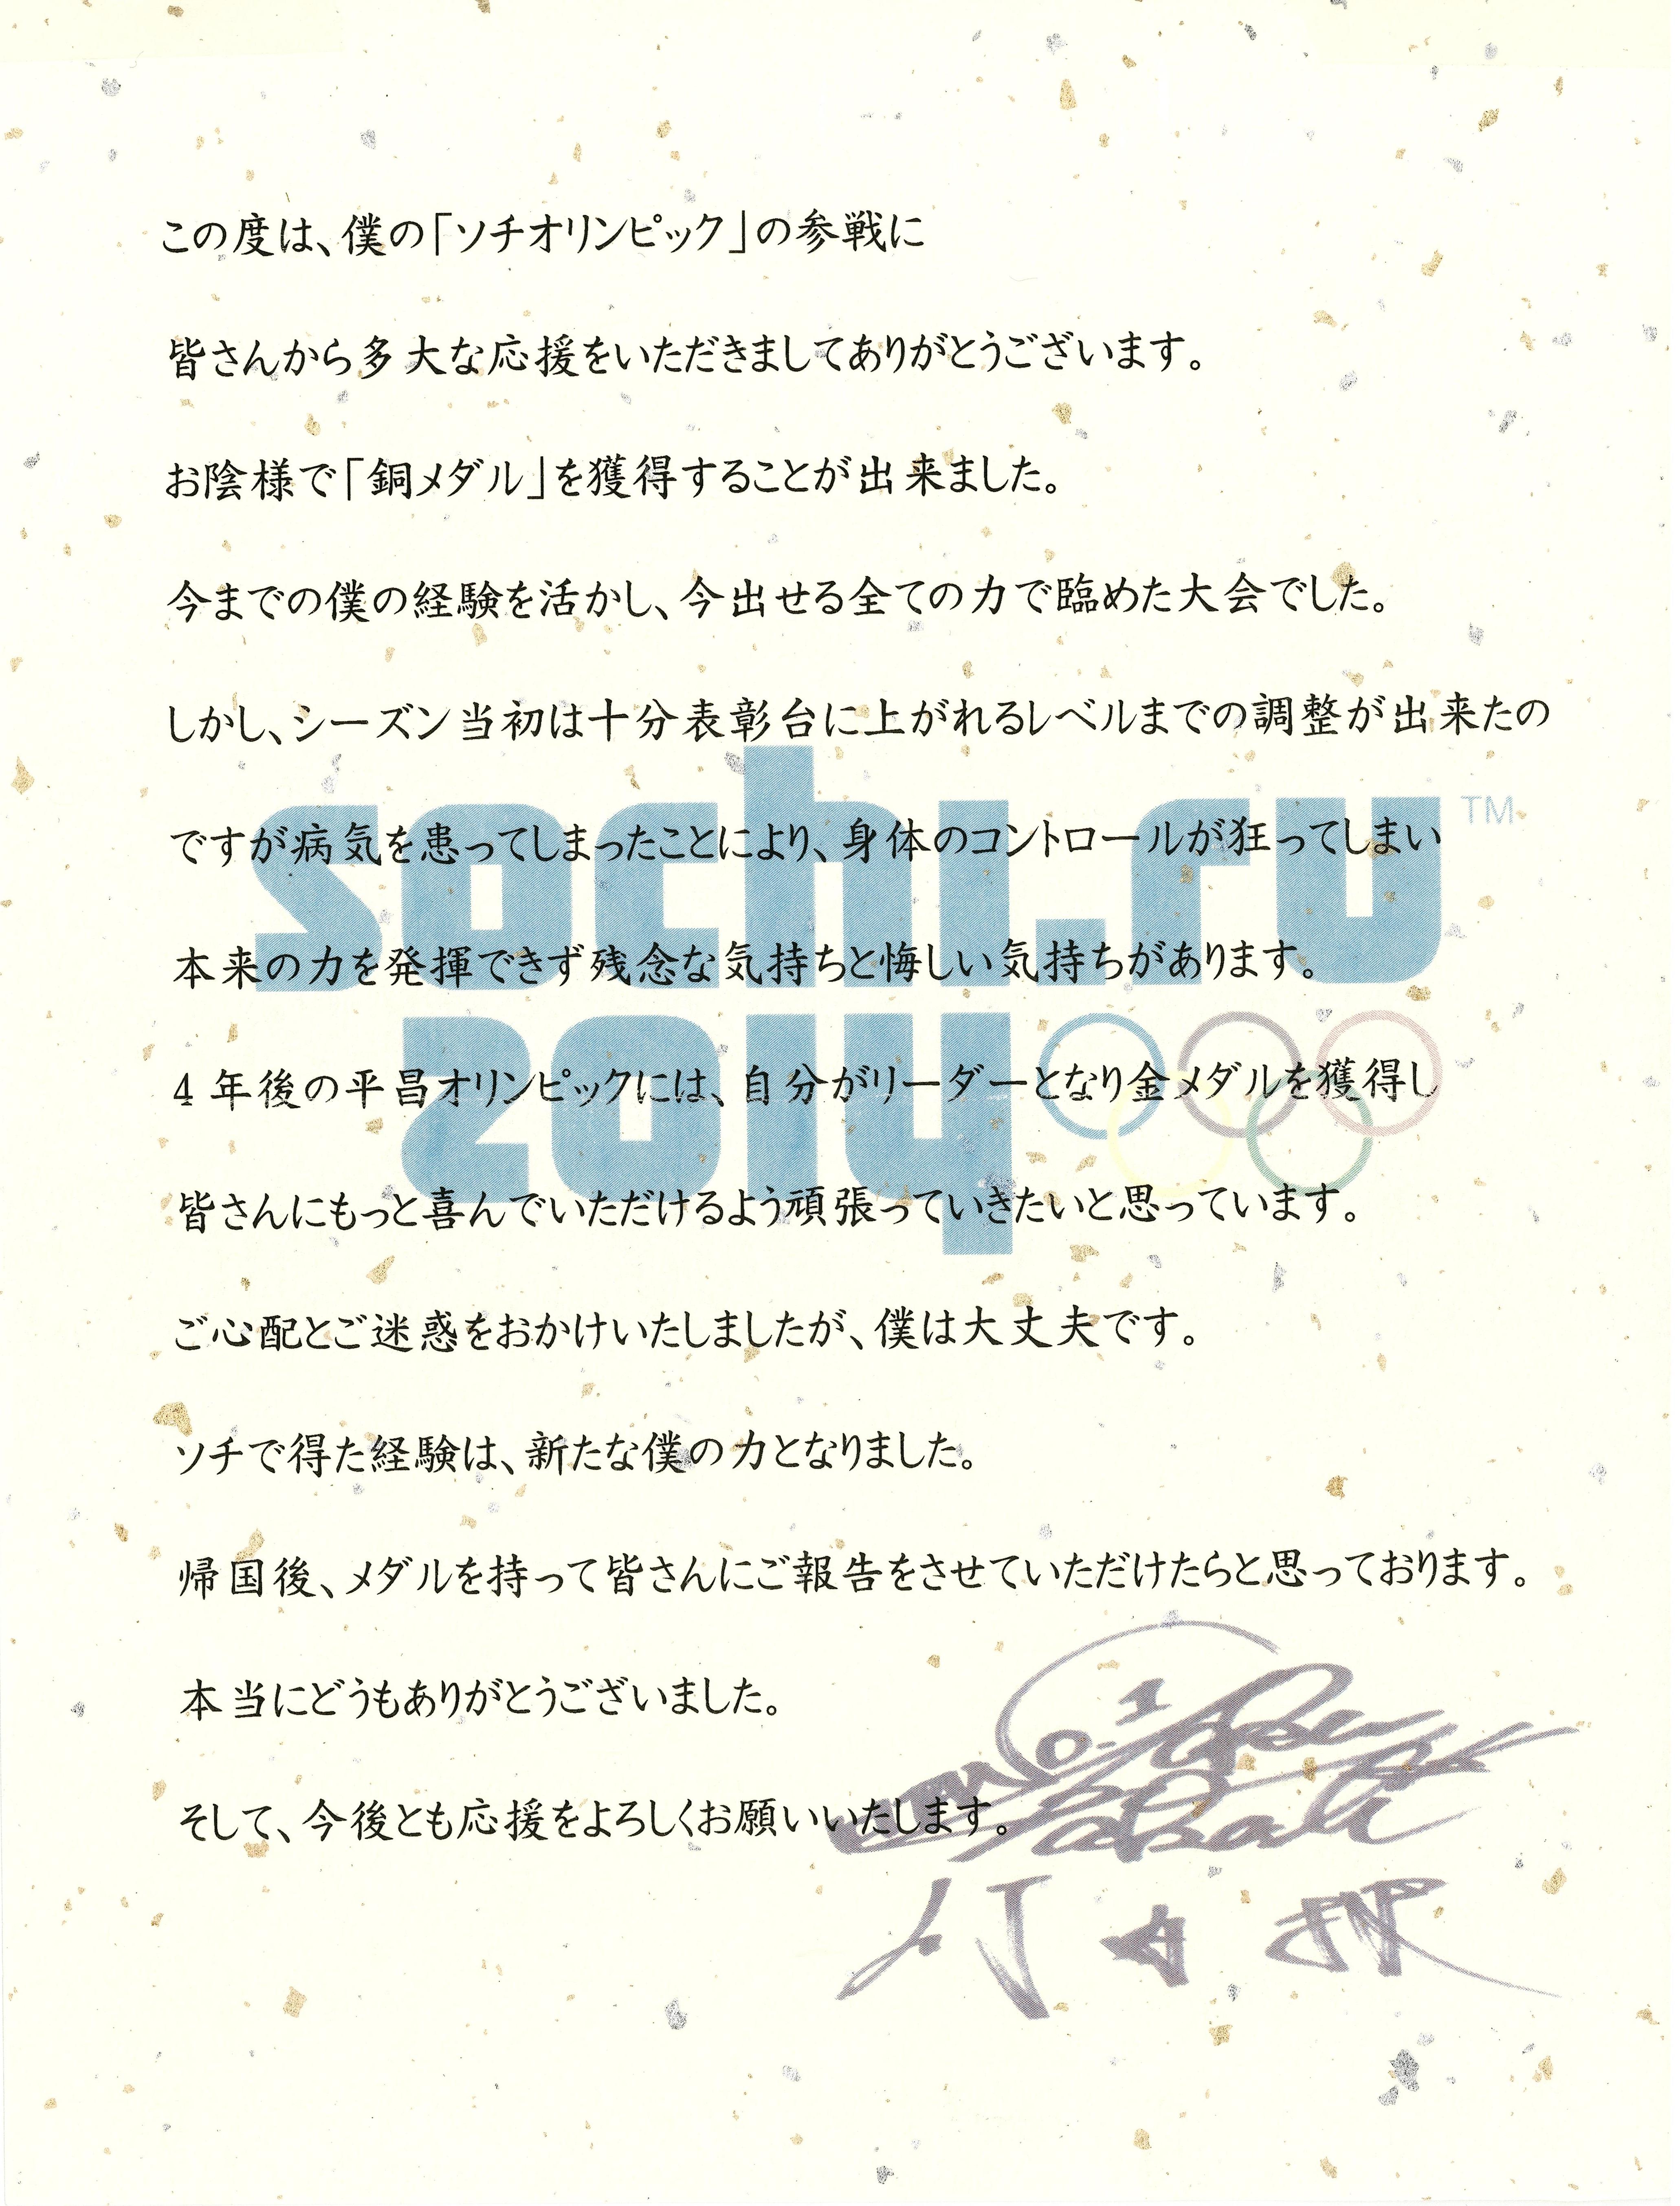 この度は、僕の「ソチオリンピック」の参戦に
皆さんから多大な応援をいただきましてありがとうございます。
お陰様で「銅メダル」を獲得することが出来ました。
今までの僕の経験を活かし、今出せる全ての力で臨めた大会でした。
しかし、シーズン当初は十分表彰台に上がれるレベルまでの調整が出来たの
ですが病気を患ってしまったことにより、身体のコントロールが狂ってしまい
本来の力を発揮できず残念な気持ちと悔しい気持ちがあります。
4年後の平昌オリンピックには、自分がリーダーとなり金メダルを獲得し
皆さんにもっと喜んでいただけるよう頑張っていきたいと思っています。
ご心配とご迷惑をおかけいたしましたが、僕は大丈夫です。
ソチで得た経験は、新たな僕の力となりました。
帰国後、メダルを持って皆さんにご報告をさせていただけたらと思っております。
本当にどうもありがとうございました。
そして、今後とも応援をよろしくお願いいたします。
sochi.ru TM
2014